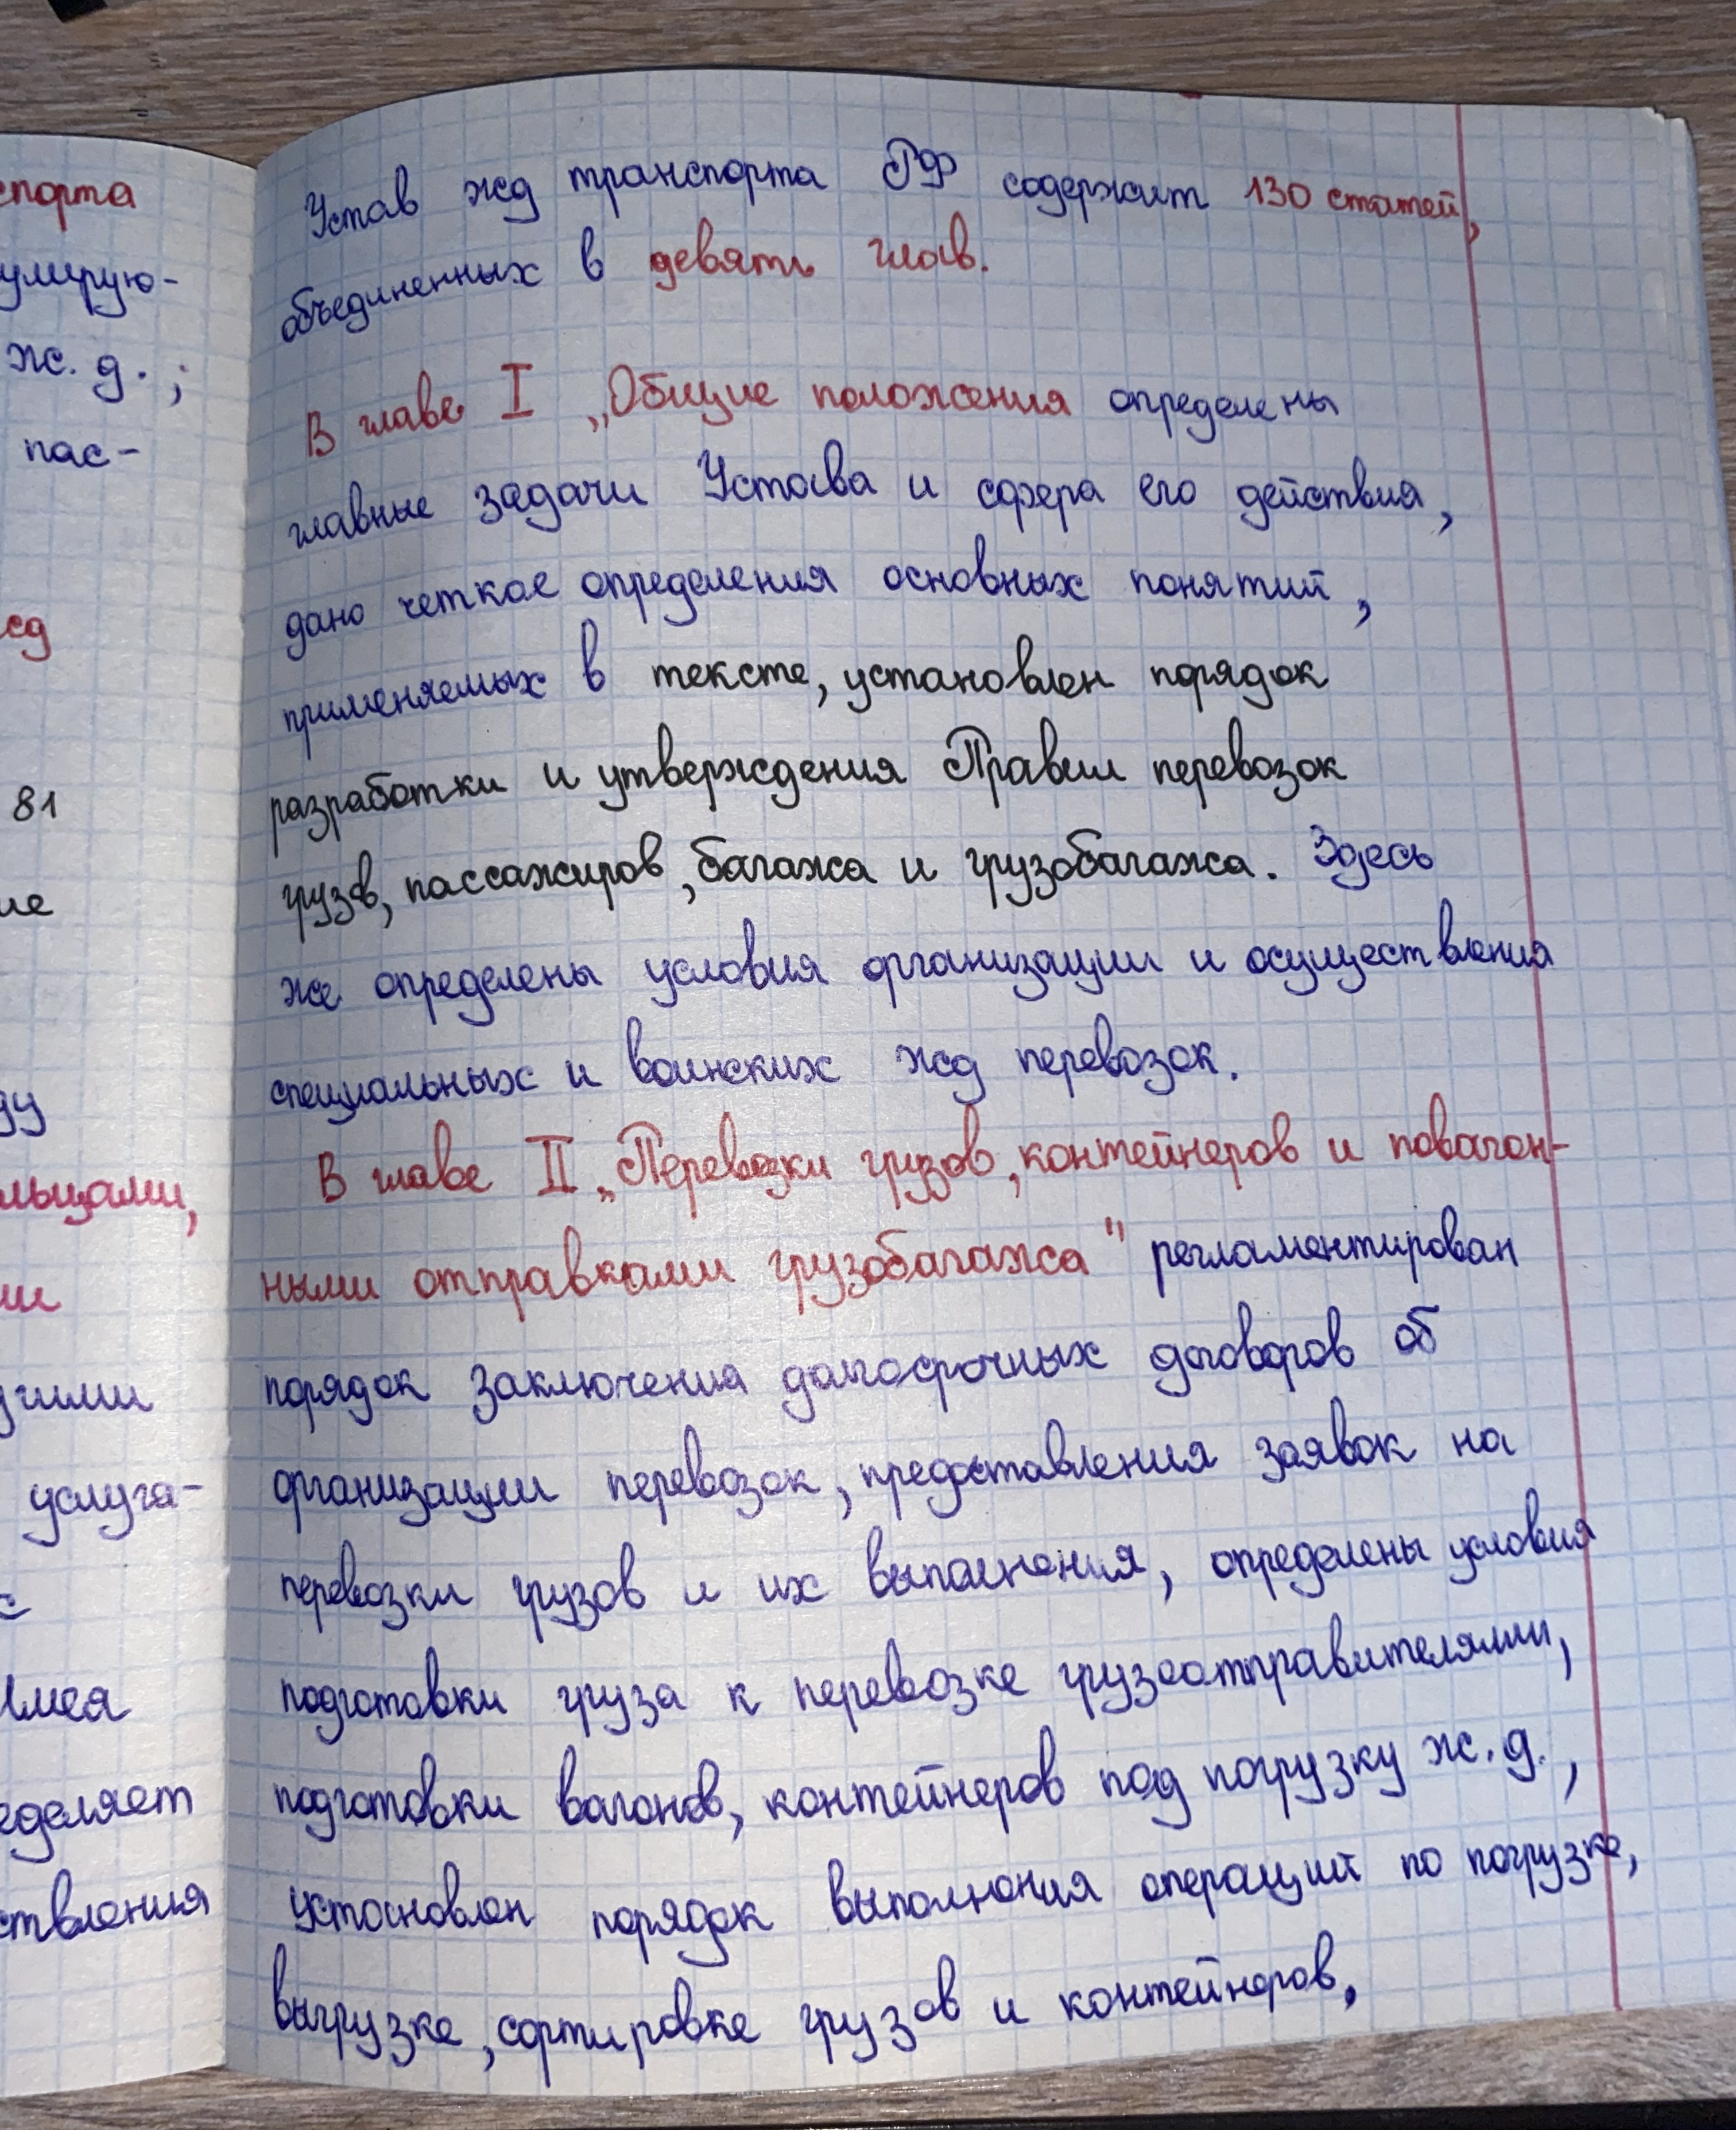 спорта
улирую-
ж. д. ;
пас-
жд
81
ие
ду
льцами,
ми
угими
услуга-
Имея
еделяет
ствления
Устав жд транспорта РФ содержит 130 статей,
объединенных в девять глав.
В главе I „Общие положения определены
главные задачи Устава и сфера его действия,
дано четкое определения основных понятий,
применяемых в тексте, установлен порядок
разработки и утверждения Правил перевозок
грузв, пассажиров, багажа и грузобагажа. Здесь
же определены условия организации и осуществления
специальных и воинских жд перевозок.
В главе II „Перевозки грузов, контейнеров и повагон-
ными отправками грузобагажа" регламентирован
порядок заключения долгосрочных договоров об
организации перевозок, предоставления заявок на
перевозки грузов и их выполнения, определены условия
подготовки груза к перевозке грузоотправителями,
подготовки вагонов, контейнеров под погрузку ж. д.,
установлен порядок выполнения операций по погрузке,
выгрузке, сортировке грузов и контейнеров,